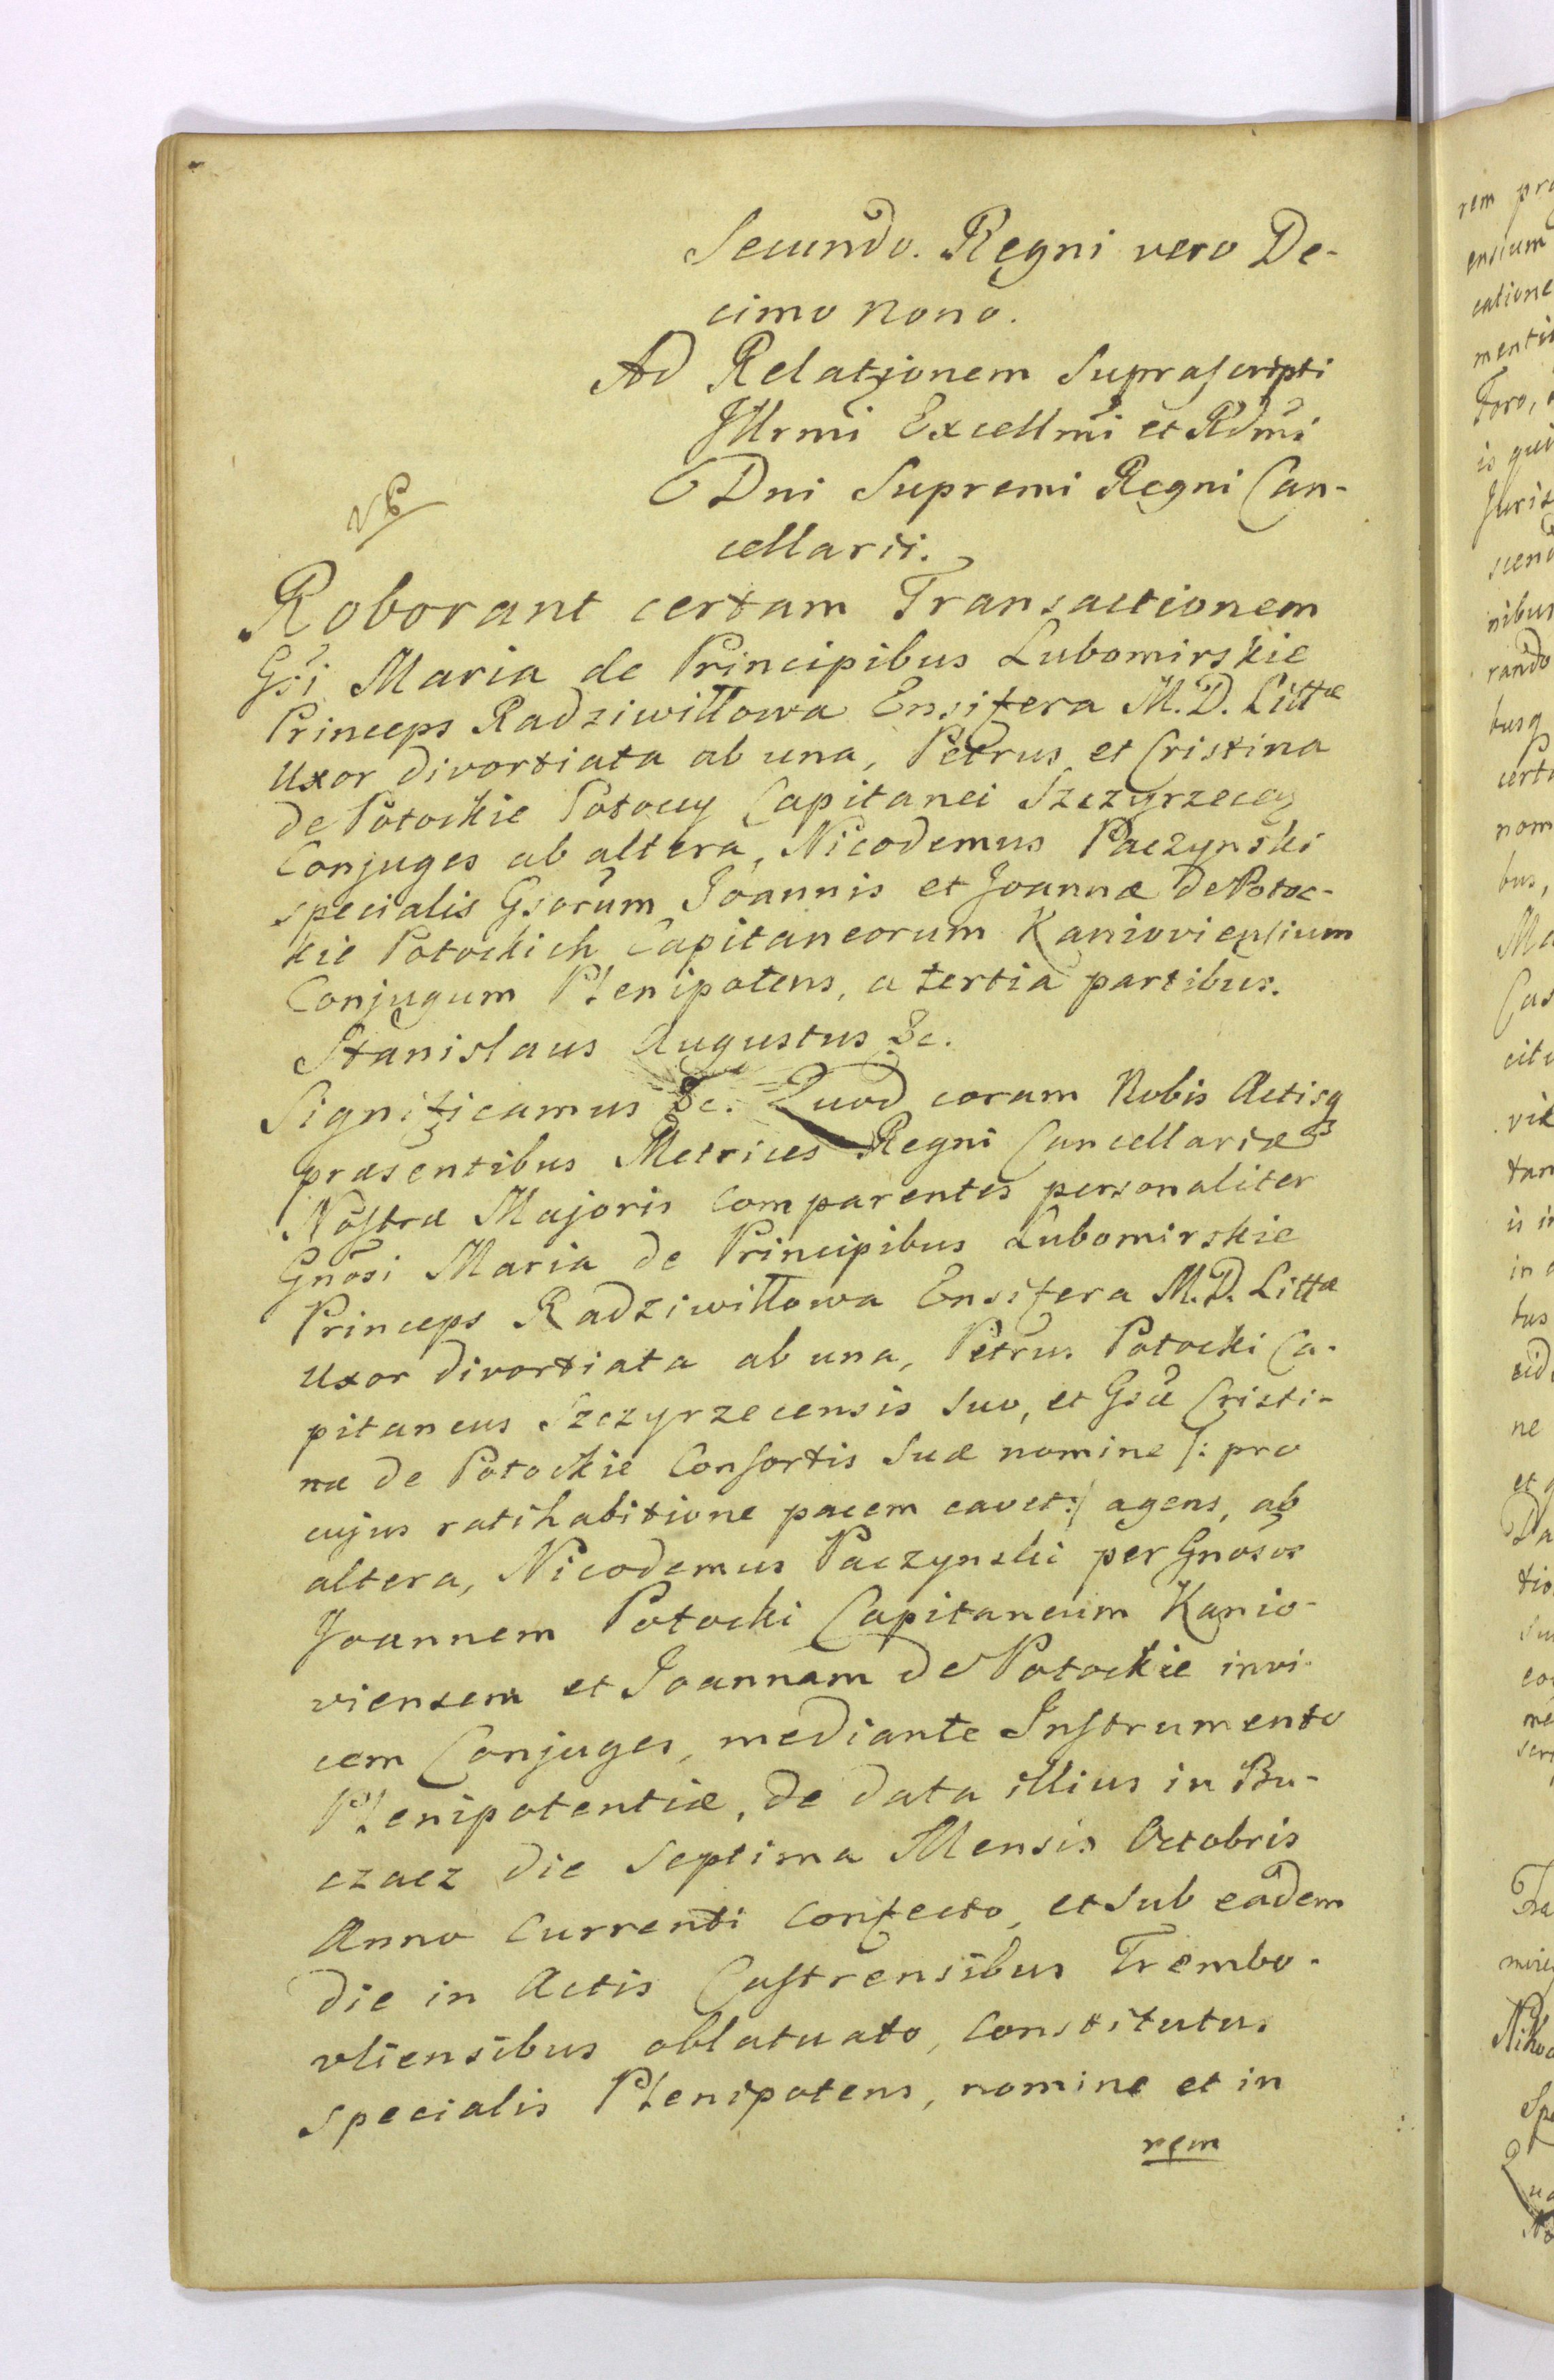 Secundo. Regni vero De-
cimo nono.
Ad Relatjonem Suprascripti
Jllrmi Excellmi et Rdmi
Dni Supremi Regni Can-
cellarii.
Roborant certam Transactionem
Gsi Maria de Principibus Lubomirskie
Princeps Radziwiłłowa Ensifera M.D. Littæ
Uxor divortiata ab una, Petrus et Cristina
de Potockie Potoccy Capitanei Szczyrzecen
Conjuges ab altera, Nicodemus Paczynski
specialis Gsorum Joannis et Joannæ de Potoc-
kie Potockich Capitaneorum Kanioviensium
Conjugum Plenipotens, a tertia partibus.
Stanislaus Augustus &c.
Significamus &c. Quod coram Nobis Actisq
præsentibus Metrices Regni Cancellariæ
Nostræ Majoris comparentes personaliter
Gnosi Maria de Principibus Lubomirskie
Princeps Radziwiłłowa Ensifera M.D. Littæ
Uxor divortiata ab una, Petrus Potocki Ca-
pitaneus Szczyrzecensis suo, et Gsæ Cristi-
næ de Potockie Consortis suæ nomine /: pro
cujus ratihabitione pacem cavet :/ agens, ab
altera, Nicodemus Paczynski per Gnosos
Joannem Potocki Capitaneum Kanio-
viensem et Joannam de Potockie invi-
cem Conjuges, mediante Instrumento
Plenipotentiæ, de data illius in Bu-
czacz die Septima Mensis Octobris
Anno currenti confecto, et sub eadem
die in Actis Castrensibus Trembo-
vliensibus oblatuato, constitutus
specialis Plenipotens, nomine et in
rem
rem
ensium
catione
Foro,
is qui
nibus
rando
nom
bus,
ne